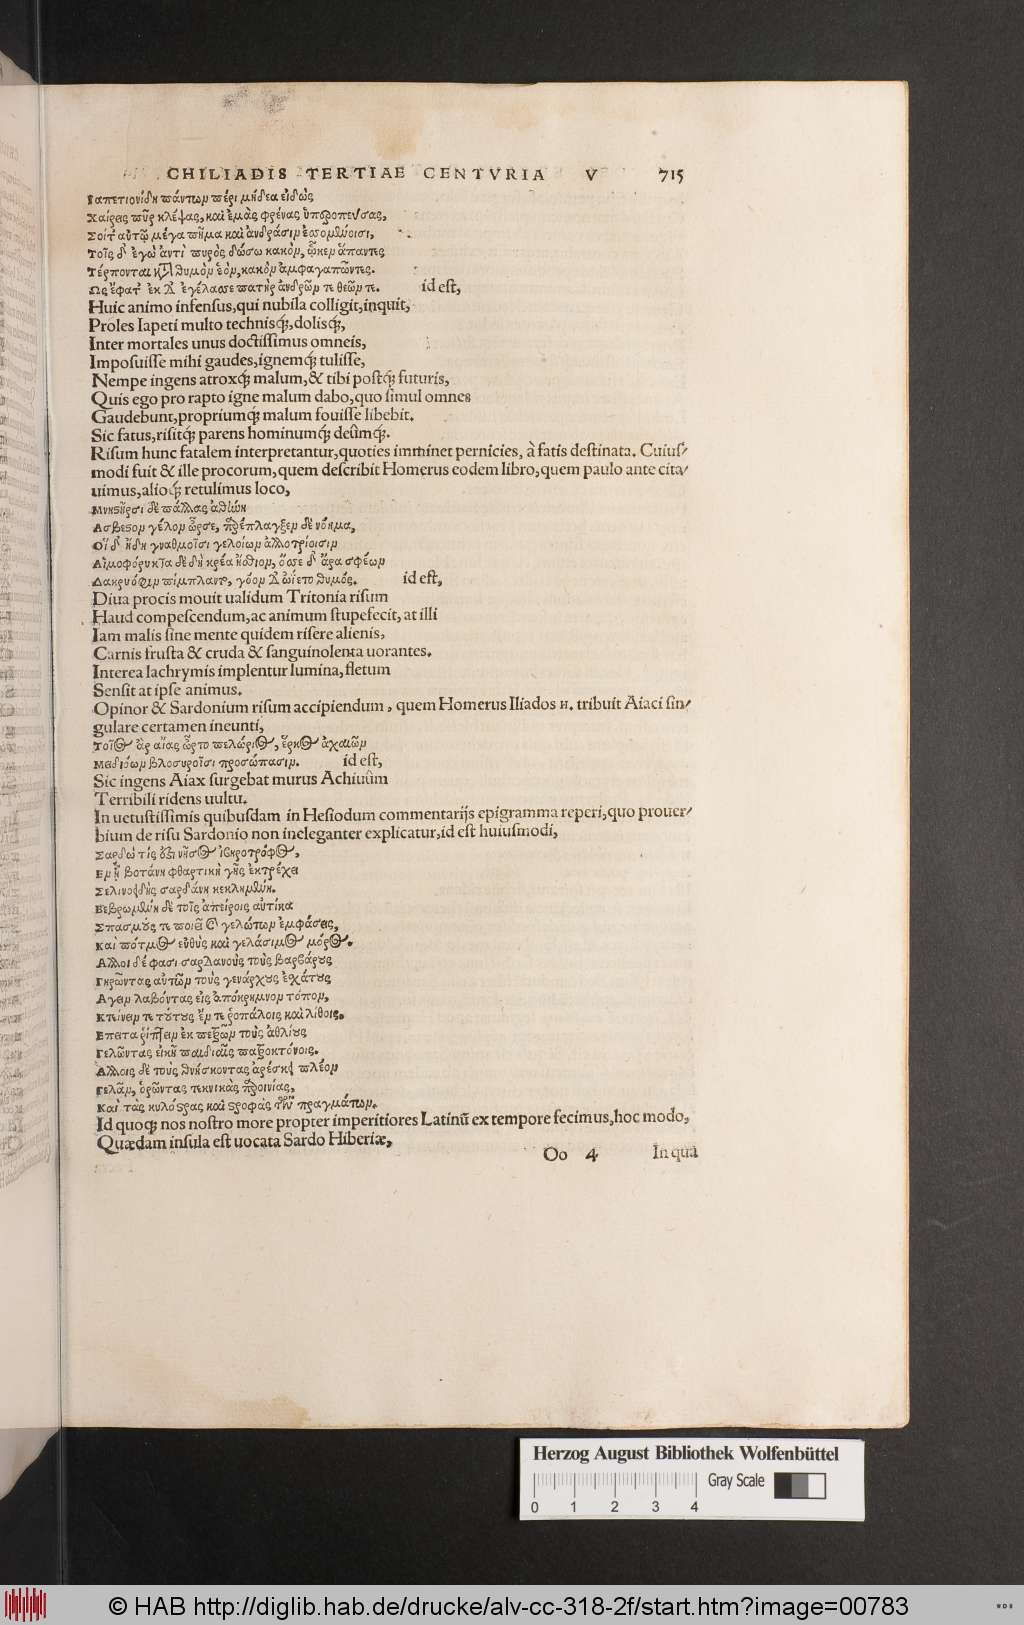 CHILIADIS TERTIAE CENTVRIA V 715
Ιαπετιονίδη πάντωμ πέρι μήδεα εἰδὼς
Χαίρεις πῦρ κλέψας, καὶ ἐμὰς φρένας ὑπεροπεύσας,
Σοίτ' αὐτῷ μέγα πῆμα καὶ ἀνδράσιμ ἐσσομένοισι,
Τοῖς δ' ἐγὼ ἀντὶ πυρὸς δώσω κακὸμ, ᾧκεμ ἅπαντες
Τέρπονται κατὰ θυμὸμ ἑὸμ, κακὸμ ἀμφαγαπῶντες.
Ως ἔφατ' ἐκ δ' ἐγέλασσε πατὴρ ἀνδρῶμ τε θεῶμ τε. id est,
Huic animo infensus, qui nubila colligit, inquit,
Proles Iapeti multo technisq́;, dolisq́;,
Inter mortales unus doctissimus omneis,
Imposuisse mihi gaudes, ignemq́; tulisse,
Nempe ingens atroxq́; malum, & tibi postq́; futuris,
Quis ego pro rapto igne malum dabo, quo simul omnes
Gaudebunt, propriumq́; malum fouisse libebit.
Sic fatus, risitq́; parens hominumq́; deûmq́;.
Risum hunc fatalem interpretantur, quoties imminet pernicies, à fatis destinata. Cuius⸗
modi fuit & ille procorum, quem describit Homerus eodem libro, quem paulo ante cita⸗
uimus, alioq́; retulimus loco,
Μνηστῆρσι δὲ πάλλας ἀθήνη
Ασβεστομ γέλομ ὦρσε, παρέπλαγξεμ δὲ νόημα,
Οἵ δ' ἤδη γναθμοῖσι γελοίωμ ἀλλοτρίοισιμ
Αἱμοφόρυκτα δὲ δὴ κρέα ἤσθιομ, ὄσσε δ' ἄρα σφέωμ
Δακρυόφιμ πίμπλαντο, γόομ δ' ὠίετο θυμός. id est,
Diua procis mouit ualidum Tritonia risum
Haud compescendum, ac animum stupefecit, at illi
Iam malis sine mente quidem risere alienis,
Carnis frusta & cruda & sanguinolenta uorantes.
Interea lachrymis implentur lumina, fletum
Sensit at ipse animus.
Opinor & Sardonium risum accipiendum, quem Homerus Iliados H. tribuit Aiaci sin⸗
gulare certamen ineunti,
Τοῖος ἂρ αἴας ὦρτο πελώριος, ἕρκος ἀχαιῶμ
Μειδιόωμ βλοσυροῖσι προσώπασιμ. id est,
Sic ingens Aiax surgebat murus Achiuûm
Terribili ridens uultu.
In uetustissimis quibusdam in Hesiodum commentarijs epigramma reperi, quo prouer⸗
bium de risu Sardonio non ineleganter explicatur, id est huiusmodi,
Σαρδὼ τίς ὀξὶ νῆσος ἰβηροτρόφος,
Εμ ᾗ βοτάνη φθαρτικὴ γῆς ἐκτρέχει
Σελινοειδὴς σαρδάνη κεκλημένη.
Βεβρωμένη δὲ τοῖς ἀπείροις αὐτίκα
Σπασμούς τε ποιεῖ καὶ γελώτωμ ἐμφάσεις,
Καὶ πότμος εὐθὺς καὶ γελάσιμος μόρος.
Αλλοι δέ φασι σαρδανοὺς τοὺς βαρβάρους
Γηρῶντας αὐτῶμ τοὺς γενάρχους ἐχάτους
Αγειμ λαβόντας εἰς ἀπόκρημνομ τόπομ,
Κτείνειμ τε τούτους ἔμ τε ῥοπάλοις καὶ λίθοις.
Επειτα ῥίπτειμ ἐκ πετρῶμ τοὺς ἀθλίους
Γελῶντας εἰκῆ παιδιαῖς πατροκτόνοις.
Αλλοις δὲ τοὺς θνήσκοντας ἀρέσκει πλέομ
Γελᾶμ, ὁρῶντας τεκνικὰς παροινίας,
Καὶ τὰς κυλόστρας καὶ στροφὰς τῶμ πραγμάτωμ.
Id quoq́; nos nostro more propter imperitiores Latinū ex tempore fecimus, hoc modo,
Quædam insula est uocata Sardo Hiberiæ,
Oo 4 In qua
Herzog August Bibliothek Wolfenbüttel
Gray Scale
0 1 2 3 4
© HAB http://diglib.hab.de/drucke/alv-cc-318-2f/start.htm?image=00783